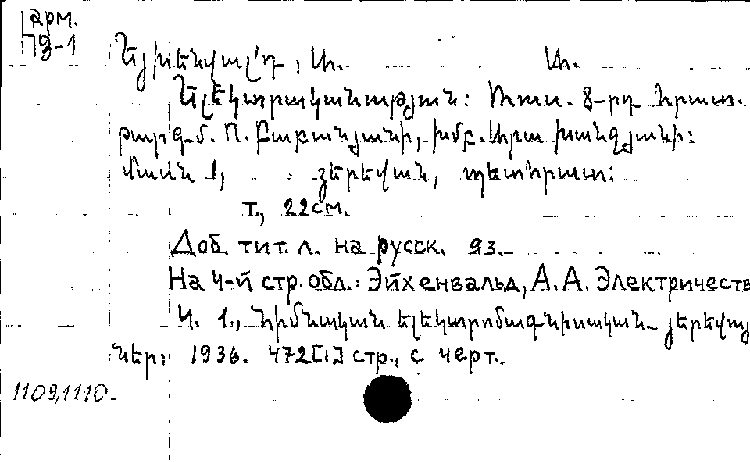 арм.
ПЭ-1
Էյխենվալդ, Ա. Ա.
Էլեկտրականություն: Ռուս. 8-րդ հրատ.
թարգմ. Պ. Քալանթյանի, խմբ. Արա Խանզյանի:
Մասն 1, Յերեվան, Պետհրատ:
т., 22см.
Доб. тит. л. на русск. яз.
На 4-й стр. обл.: Эйхенвальд, А. А. Электричеств
Ч. 1., Հիմնական ելեկտրոմագնիսական յերեվույ
ներ: 1936. 472[1] стр., с черт.
1109,1110.